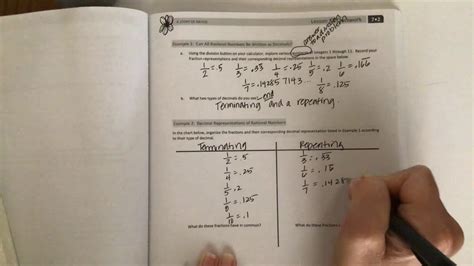 A STORY OF RATIOS
7•2
Example 1: Can All Rational Numbers Be Written as Decimals?
a. Using the division button on your calculator, explore various quotients of integers 1 through 11. Record your fraction representations and their corresponding decimal representations in the space below.
1/2 = .5  1/3 = .33  1/4 = .25  1/5 = .2  1/6 = .166
1/7 = .142857143...  1/8 = .125
b. What two types of decimals do you see?
Terminating and a repeating.
Example 2: Decimal Representations of Rational Numbers
In the chart below, organize the fractions and their corresponding decimal representation listed in Example 1 according to their type of decimal.
Terminating  Repeating
1/2 = .5  1/3 = .33
1/4 = .25  1/6 = .16
1/5 = .2  1/7 = .1428
1/8 = .125
1/10 = .1
What do these fractions have in common?  What do these fractions have